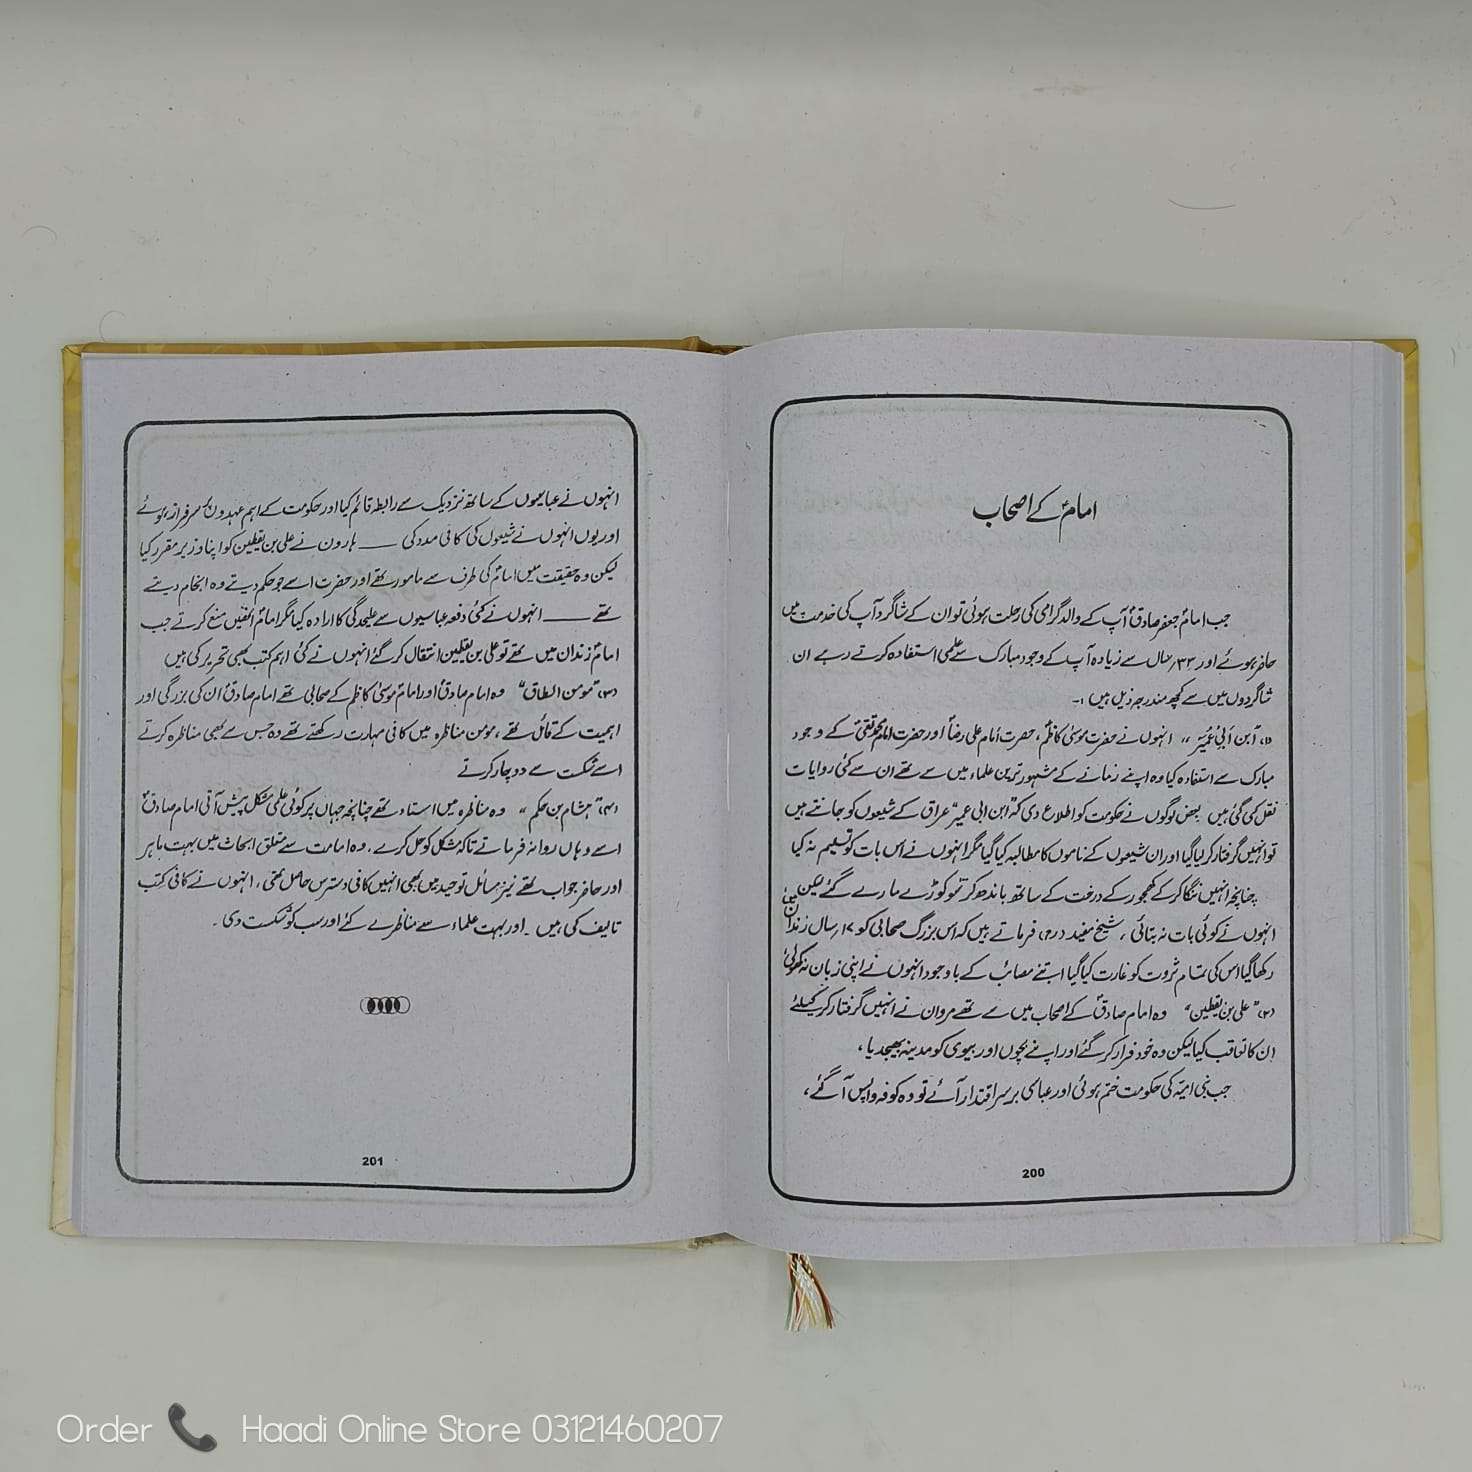 امامؑ کے اصحاب
جب امام جعفر صادقؑ آپ کے والد گرامی کی رحلت ہوئی تو ان کے شاگرد آپ کی خدمت میں
حاضر ہوئے اور ۳۳ سال سے زیادہ آپ کے وجود مبارک سے علمی استفادہ کرتے رہے ان
شاگردوں میں سے کچھ مندرجہ ذیل ہیں :۔
(۱) "ابن ابی عمیر" انہوں نے حضرت موسیٰ کاظمؑ، حضرت امام علی رضاؑ اور حضرت امام محمد تقیؑ کے وجود
مبارک سے استفادہ کیا وہ اپنے زمانے کے مشہور ترین علماء میں سے تھے ان سے کئی روایات
نقل کی گئی ہیں بعض لوگوں نے حکومت کو اطلاع دی کہ "ابن ابی عمیر" عراق کے شیعوں کو جانتے ہیں
تو انہیں گرفتار کر لیا گیا اور ان شیعوں کے ناموں کا مطالبہ کیا گیا مگر انہوں نے اس بات کو تسلیم نہ کیا
چنانچہ انہیں ننگا کر کے کھجور کے درخت کے ساتھ باندھ کر سو کوڑے مارے گئے لیکن
انہوں نے کوئی بات نہ بتائی ، شیخ مفید (رح) فرماتے ہیں کہ اس بزرگ صحابی کو ۱۷ سال زندان میں
رکھا گیا اس کی تمام ثروت کو غارت کیا گیا اتنے مصائب کے باوجود انہوں نے اپنی زبان نہ کھولی
(۲) "علی بن یقطین" وہ امام صادقؑ کے اصحاب میں سے تھے مروان نے انہیں گرفتار کرنے کیلئے
ان کا تعاقب کیا لیکن وہ خود فرار کر گئے اور اپنے بچوں اور بیوی کو مدینہ بھیجدیا ،
جب بنی امیہ کی حکومت ختم ہوئی اور عباسی برسر اقتدار آئے تو وہ کوفہ واپس آ گئے ،
200
انہوں نے عباسیوں کے ساتھ نزدیک سے رابطہ قائم کیا اور حکومت کے اہم عہدوں پر سرفراز ہوئے
اور یوں انہوں نے شیعوں کی کافی مدد کی ـــــ ہارون نے علی بن یقطین کو اپنا وزیر مقرر کیا
لیکن وہ حقیقت میں امامؑ کی طرف سے مامور تھے اور حضرت اسے جو حکم دیتے وہ انجام دیتے
تھے ـــــ انہوں نے کئی دفعہ عباسیوں سے علیحدگی کا ارادہ کیا مگر امامؑ انھیں منع کرتے جب
امامؑ زندان میں تھے تو علی بن یقطین انتقال کر گئے انہوں نے کئی اہم کتب بھی تحریر کی ہیں
(۳) "مومن الطاق" وہ امام صادقؑ اور امام موسیٰ کاظمؑ کے صحابی تھے امام صادقؑ ان کی بزرگی اور
اہمیت کے قائل تھے ، مومن مناظرہ میں کافی مہارت رکھتے تھے وہ جس سے بھی مناظرہ کرتے
اسے شکست سے دوچار کرتے
(۴) "ہشام بن حکم" وہ مناظرہ میں استاد تھے چنانچہ جہاں پر کوئی علمی مشکل پیش آتی امام صادقؑ
اسے وہاں روانہ فرماتے تاکہ مشکل کو حل کرے ، وہ امامت سے متعلق ابحاث میں بہت ماہر
اور حاضر جواب تھے نیز مسائل توحید میں بھی انہیں کافی دسترس حاصل تھی ، انہوں نے کافی کتب
تالیف کی ہیں ۔ اور بہت علماء سے مناظرے کئے اور سب کو شکست دی ۔
201
Order Haadi Online Store 03121460207